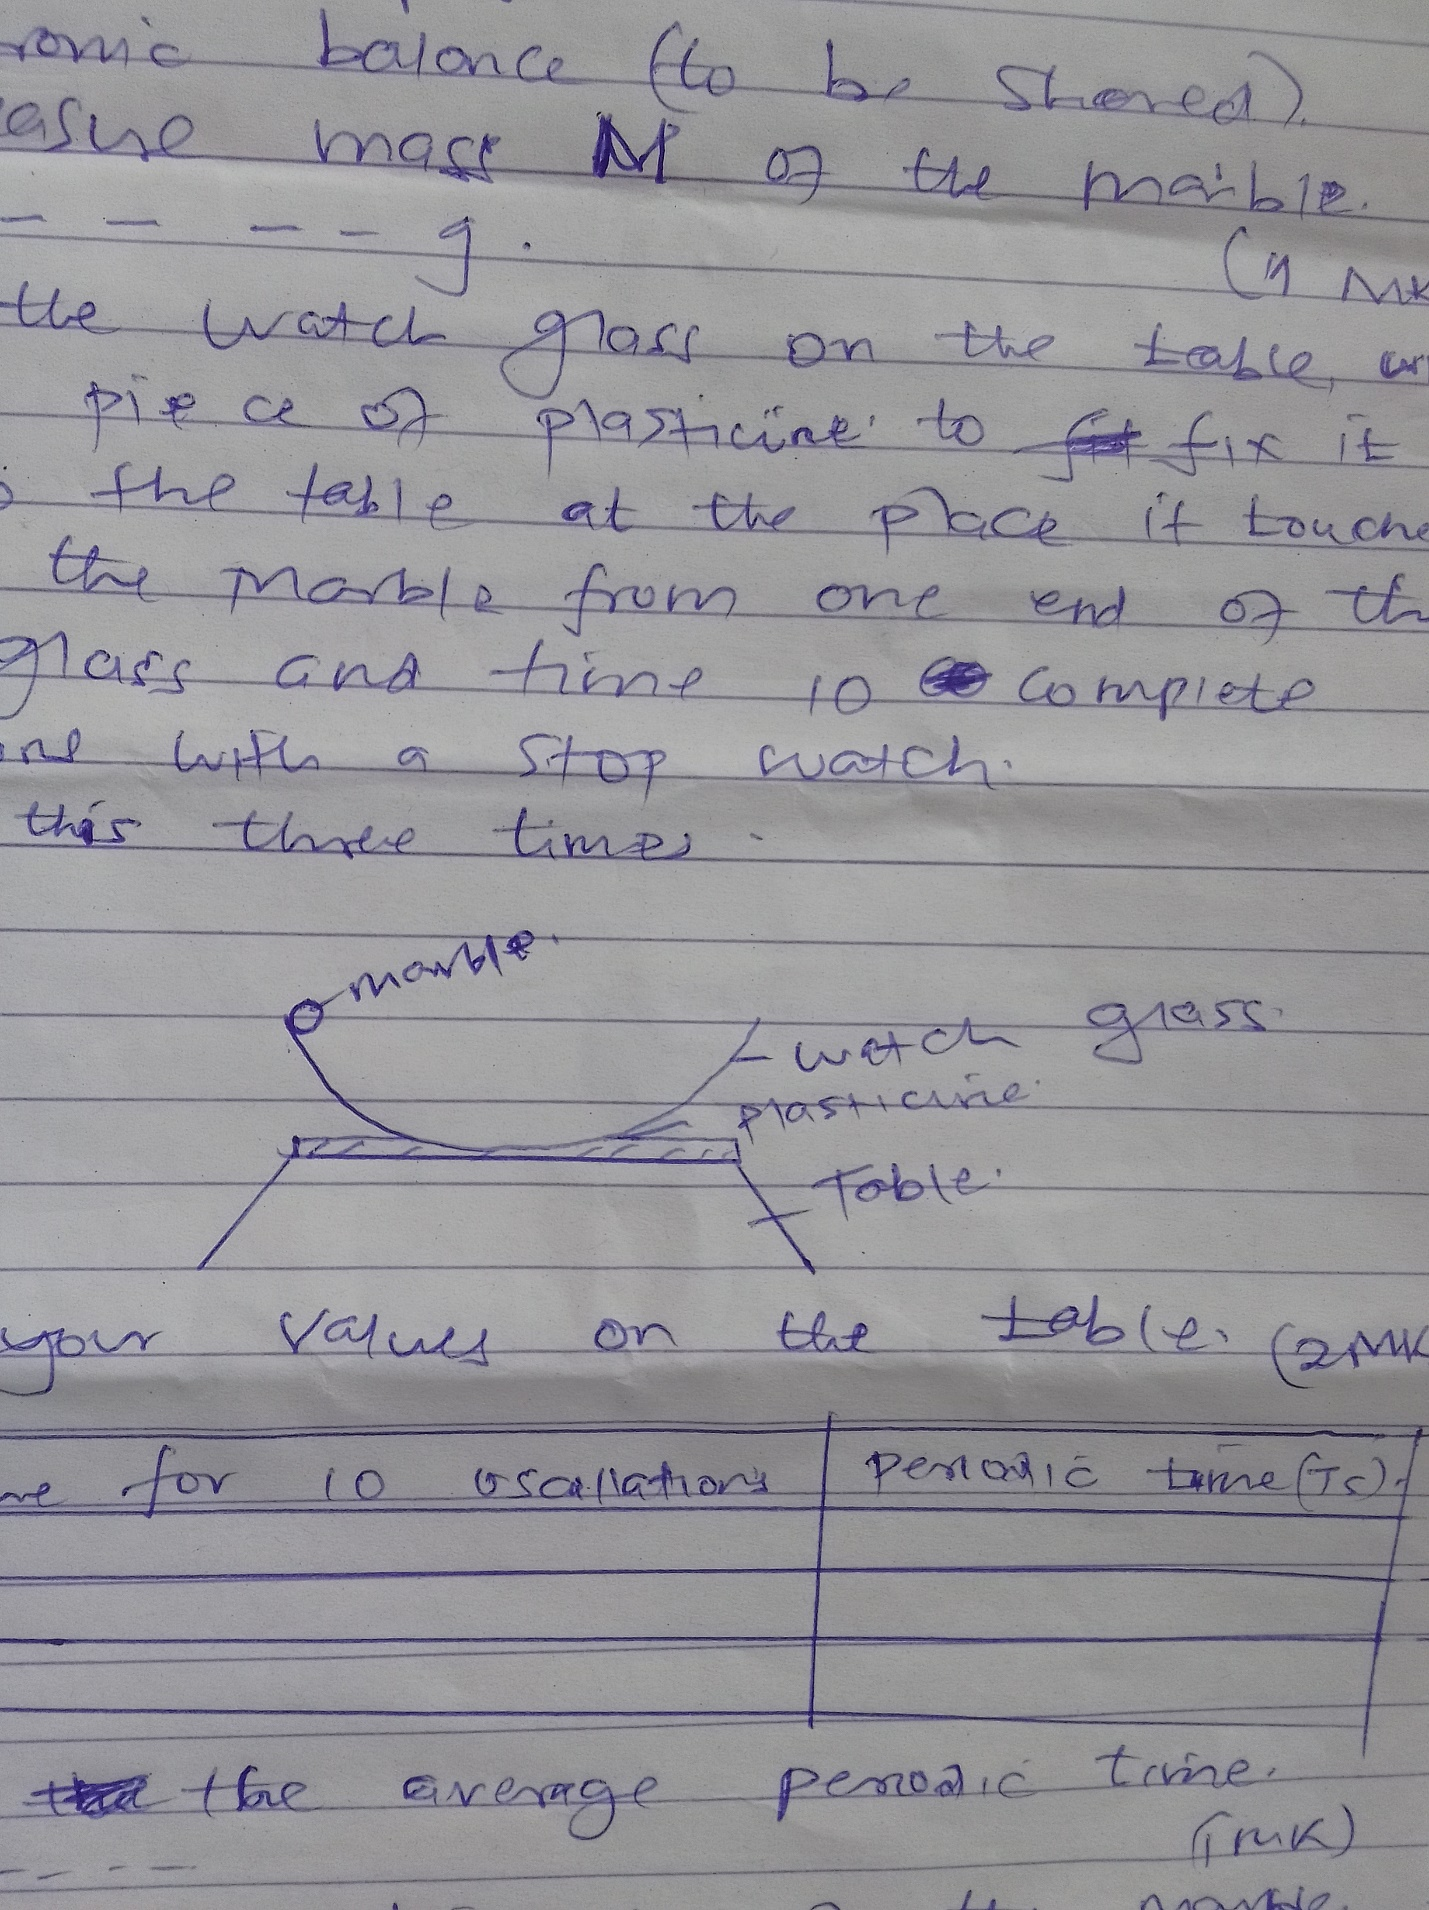 ronic balance (to be shared).
easure mass M of the marble.
– – – – g.
(1 MK
the watch glass on the table, us
piece of plasticine to fix it
o the table at the place it touche
the marble from one end of th
glass and time 10 complete
ons with a stop watch.
this three times.
marble.
watch glass.
plasticine.
Table.
your values on the table. (2MK
me for 10 oscillations
periodic time (Ts).
the average periodic time.
(1 MK)
– – – –
marble.